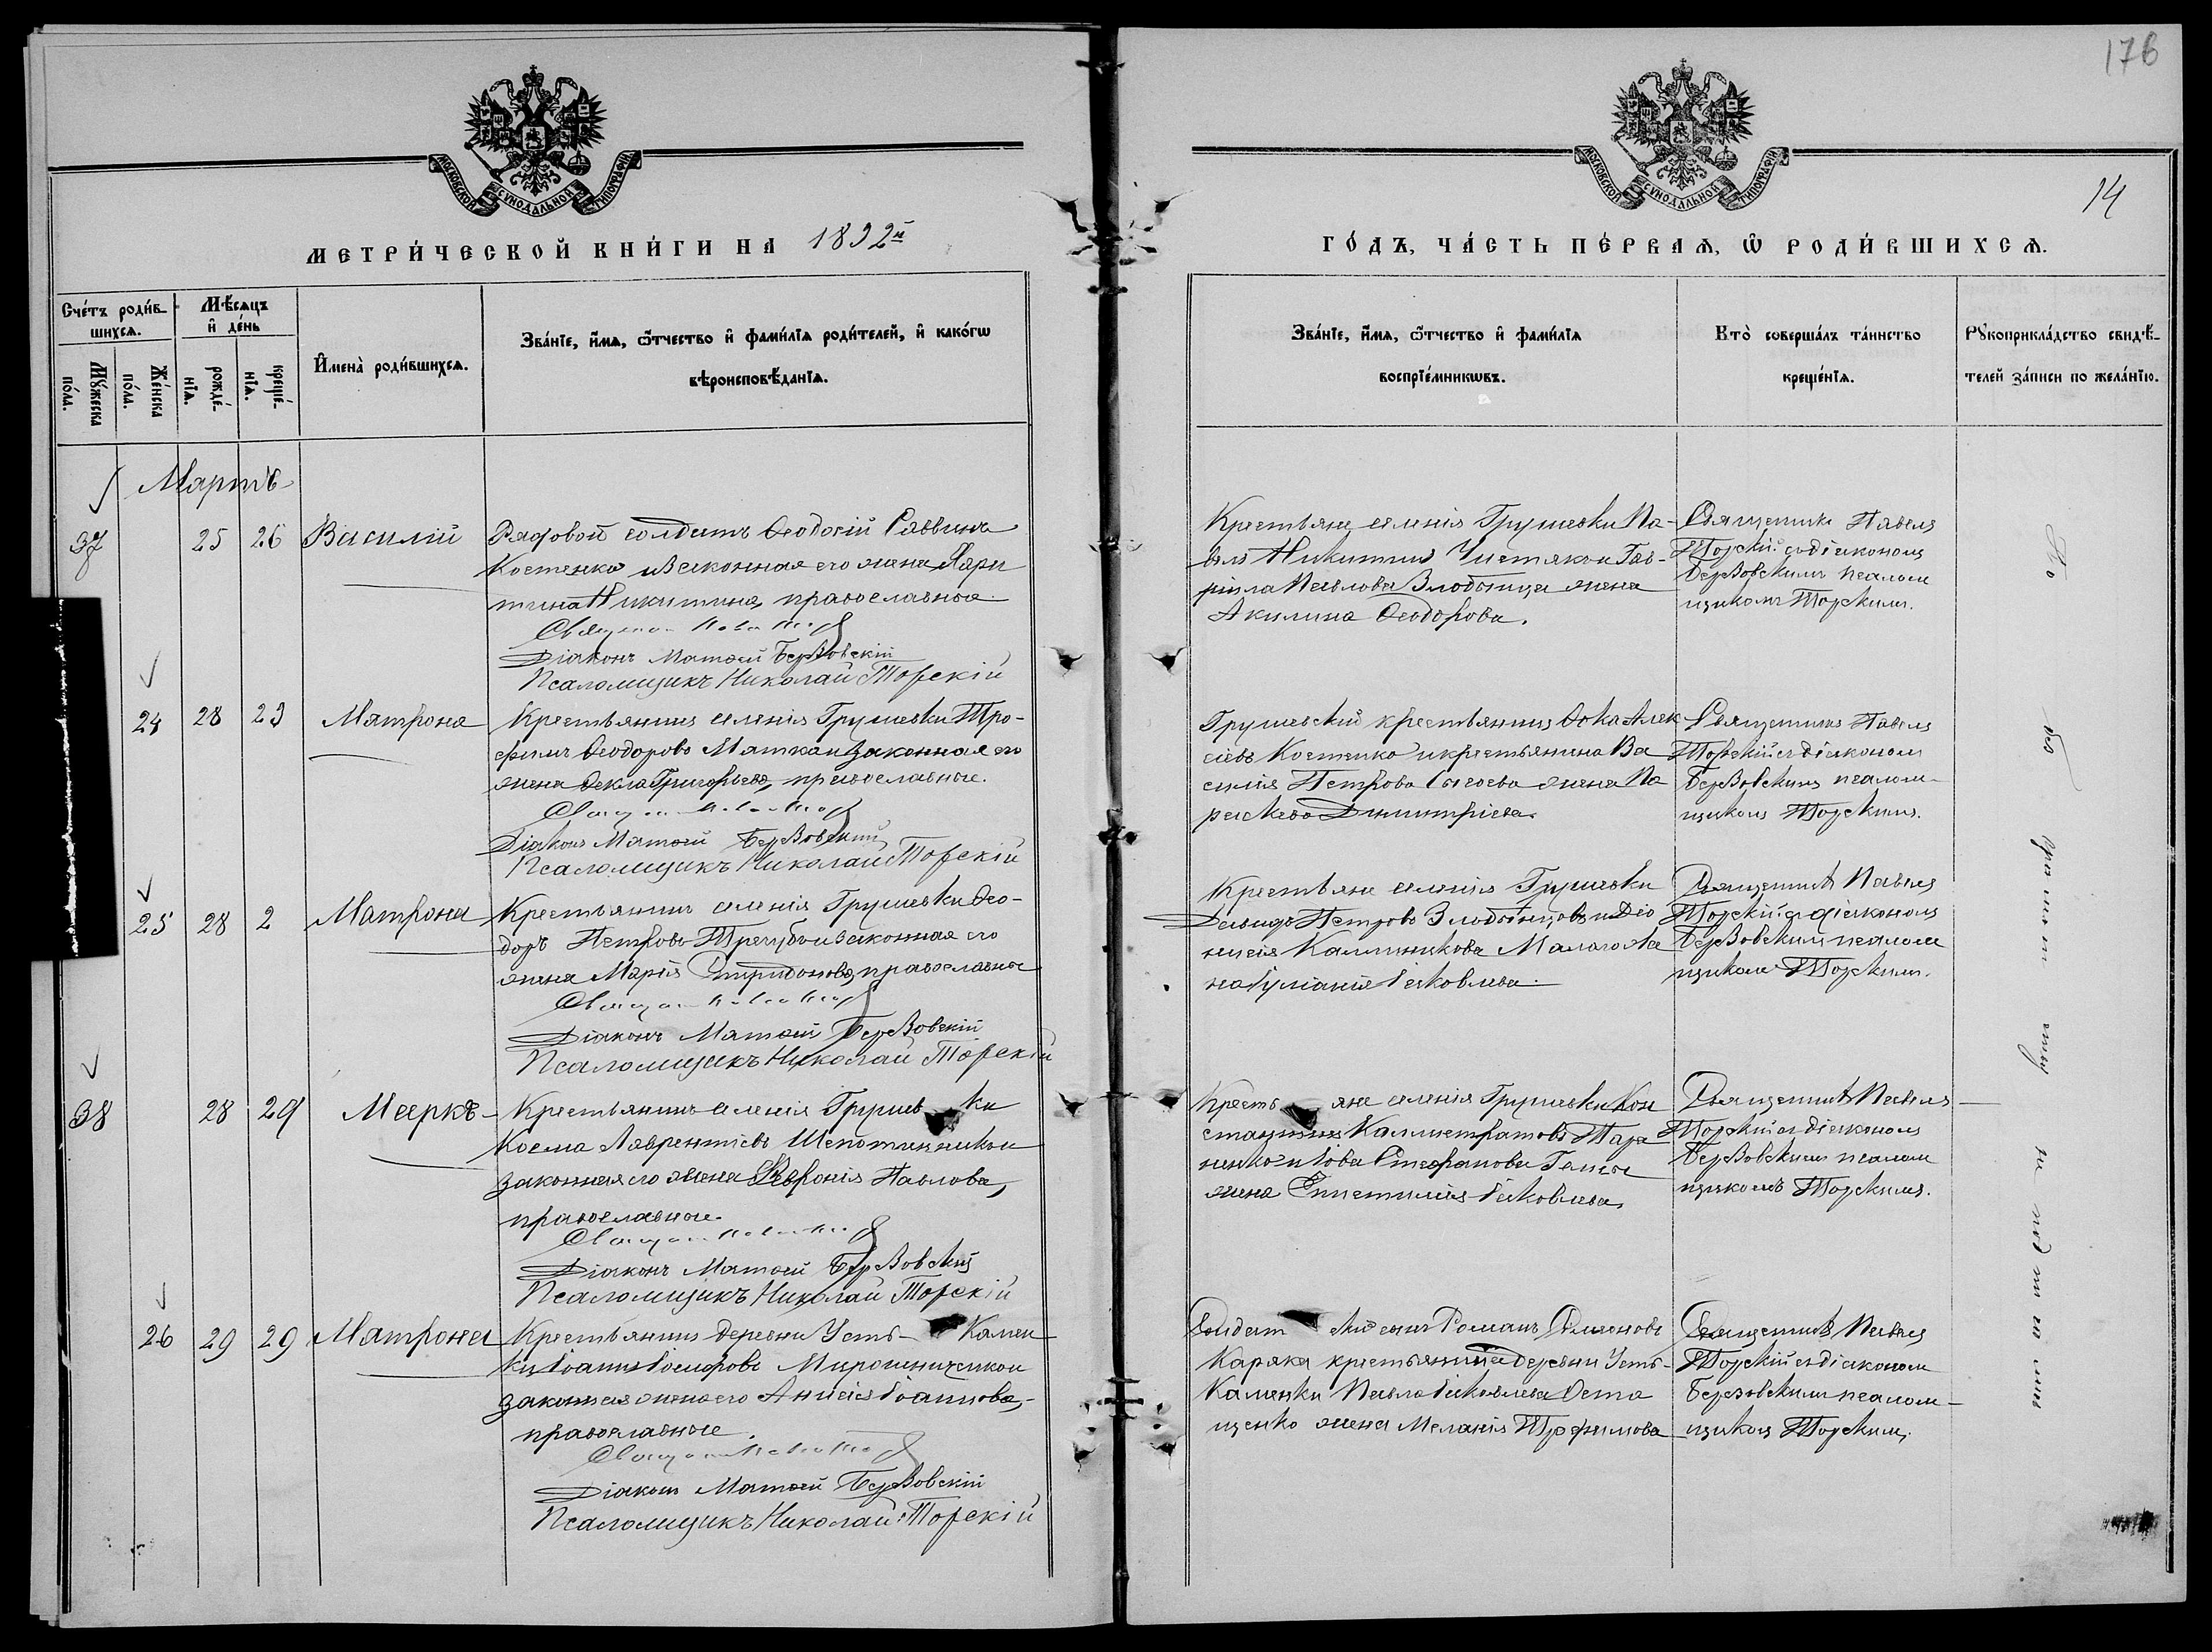 176
14
МОСКОВСКОЙ СѴНОДАЛЬНОЙ ТИПОГРАФІИ
МОСКОВСКОЙ СѴНОДАЛЬНОЙ ТИПОГРАФІИ
МЕТРИ́ЧЕСКОЙ КНИ́ГИ НА 1892й
ГО́ДЪ, ЧА́СТЬ ПЕ́РВАѦ, Ѡ РОДИ́ВШИХСѦ.
Сче́тъ роди́в-
шихсѧ.
Мꙋ́жеска по́ла.
Же́нска по́ла.
Мѣ́сѧцъ и де́нь
рожде́-нїѧ.
креще́-нїѧ.
Имена̀ роди́вшихсѧ.
Зва́нїе, и́мѧ, ѻ́тчество и фами́лїѧ роди́телей, и како́гѡ
вѣроисповѣ́данїѧ.
Зва́нїе, и́мѧ, ѻ́тчество и фами́лїѧ
воспрїе́мникѡвъ.
Кто̀ соверша́лъ та́инство
креще́нїѧ.
Рꙋкоприкла́дство свидѣ́-
телей за́писи по жела́нїю.
Мартъ
37 25 26 Василій
Рядовой солдатъ Ѳеодосій Саввинъ
Костенко и законная его жена Хари
тина Никитина, православные
Діаконъ Матѳей Березовскій
Псаломщикъ Николай Торскій
Крестьяне селенія Грушевки Па-
велъ Никитинъ Чистякъ и Гав-
ріила Павлова Злобинца жена
Акилина Ѳеодорова.
Священникъ Павелъ
Торскій съ діакономъ
Березовскимъ псалом
щикомъ Торскимъ.
24 28 29 Матрона
Крестьянинъ селенія Грушевки Тро-
фимъ Ѳеодоровъ Маткаи законная его
жена Ѳекла Григорьева, православные.
Діаконъ Матѳей Березовскій
Псаломщикъ Николай Торскій
Грушевскій крестьянинъ Ѳока Алек
сіевъ Костенко и крестьянина Ва
силія Петрова Сысоева жена Па
раскева Димитріева.
Священникъ Павелъ
Торскій съ діакономъ
Березовскимъ псалом-
щикомъ Торскимъ.
25 28 2 Матрона
Крестьянинъ селенія Грушевки Ѳео-
доръ Петровъ Трегубъ и законная его
жена Марія Спиридонова, православные
Діаконъ Матѳей Березовскій
Псаломщикъ Николай Торскій
Крестьяне селенія Грушевки
Давидъ Петровъ Злобинцовъ и Діо
нисія Каллиникова Малаго же
на Іуліанія Іаковлева.
Священникъ Павелъ
Торскій съ діакономъ
Березовскимъ псалом
щикомъ Торскимъ.
38 28 29 Маркъ
Крестьянинъ селенія Грушевки
Косма Лаврентіевъ
законная его жена Ѳевронія Павлова,
православные.
Діаконъ Матѳей Березовскій
Псаломщикъ Николай Торскій
Крестьяне селенія Грушевки Кон
стантинъ Каллистратовъ Тара
ненко и Іова Стефанова
жена Епистимія Іаковлева
Священникъ Павелъ
Торскій съ діакономъ
Березовскимъ псалом
щикомъ Торскимъ.
26 29 29 Матрона
Крестьянинъ деревни Усть-Камен
ки Іоаннъ Іосифовъ Мирошниченко и
законная жена его Анисія Іоаннова,
православные.
Діаконъ Матѳей Березовскій
Псаломщикъ Николай Торскій
Солдатскій сынъ Романъ Симеоновъ
Каряка крестьянина деревни Усть-
Каменки Павла Іаковлева Оста
щенко жена Меланія Трофимова
Священникъ Павелъ
Торскій съ діакономъ
Березовскимъ псалом-
щикомъ Торскимъ.